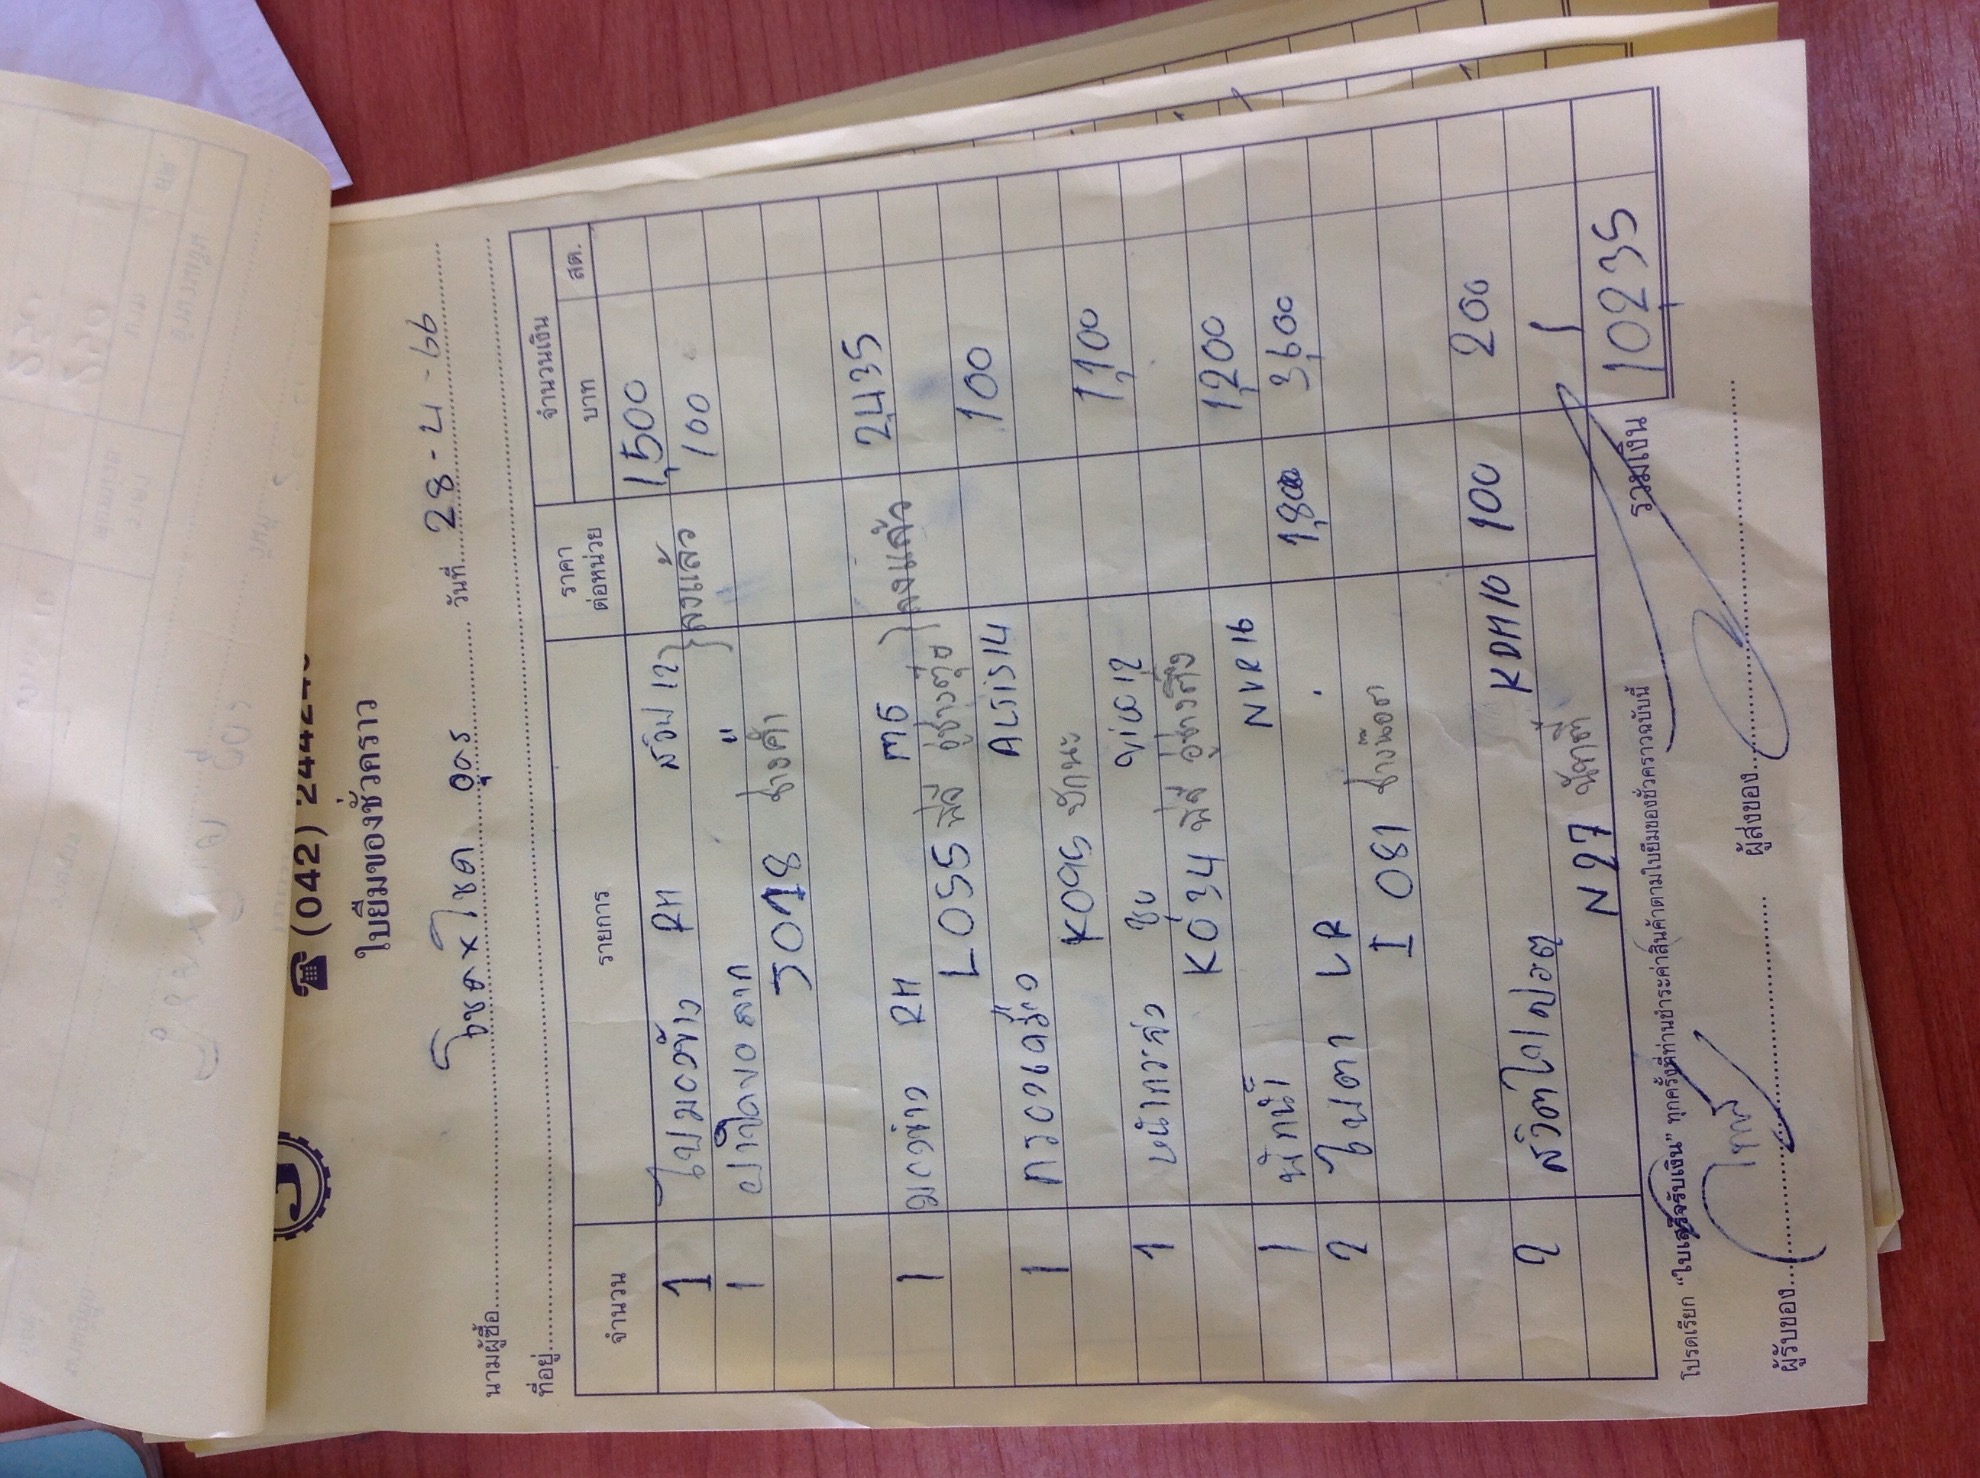 ☎ (042) 24424
ใบยืมของชั่วคราว
นามผู้ซื้อ โชค x โชค อุดร วันที่ 28-4-66
ที่อยู่
จำนวน รายการ ราคาต่อหน่วย จำนวนเงิน
บาท สต.
1 ไฟมองข้าง RH 1,500
1 ฝาปิดขอลาก " } ลงแล้ว 100
J018 ช่างดำ
1 มองข้าง RH 2,435
L055 พี่ลี อู่ช่างตุ้ย } ลงแล้ว
1 กรองเครื่อง ALTIS14 100
K095
1 หน้ากระจัง ชุบ VIGO12 1,100
K034 พี่ลี
1 พักน้ำ NVR16 1,200
2 ไฟตา LR 1,800 3,600
I 081 ช่างน๊อต
2 สวิตไดปอต KDH10 100 200
N27
รวมเงิน 10235
โปรดเรียก "ใบเสร็จรับเงิน" ทุกครั้งที่ท่านชำระค่าสินค้าตามใบยืมของชั่วคราวฉบับนี้
ผู้รับของ ผู้ส่งของ